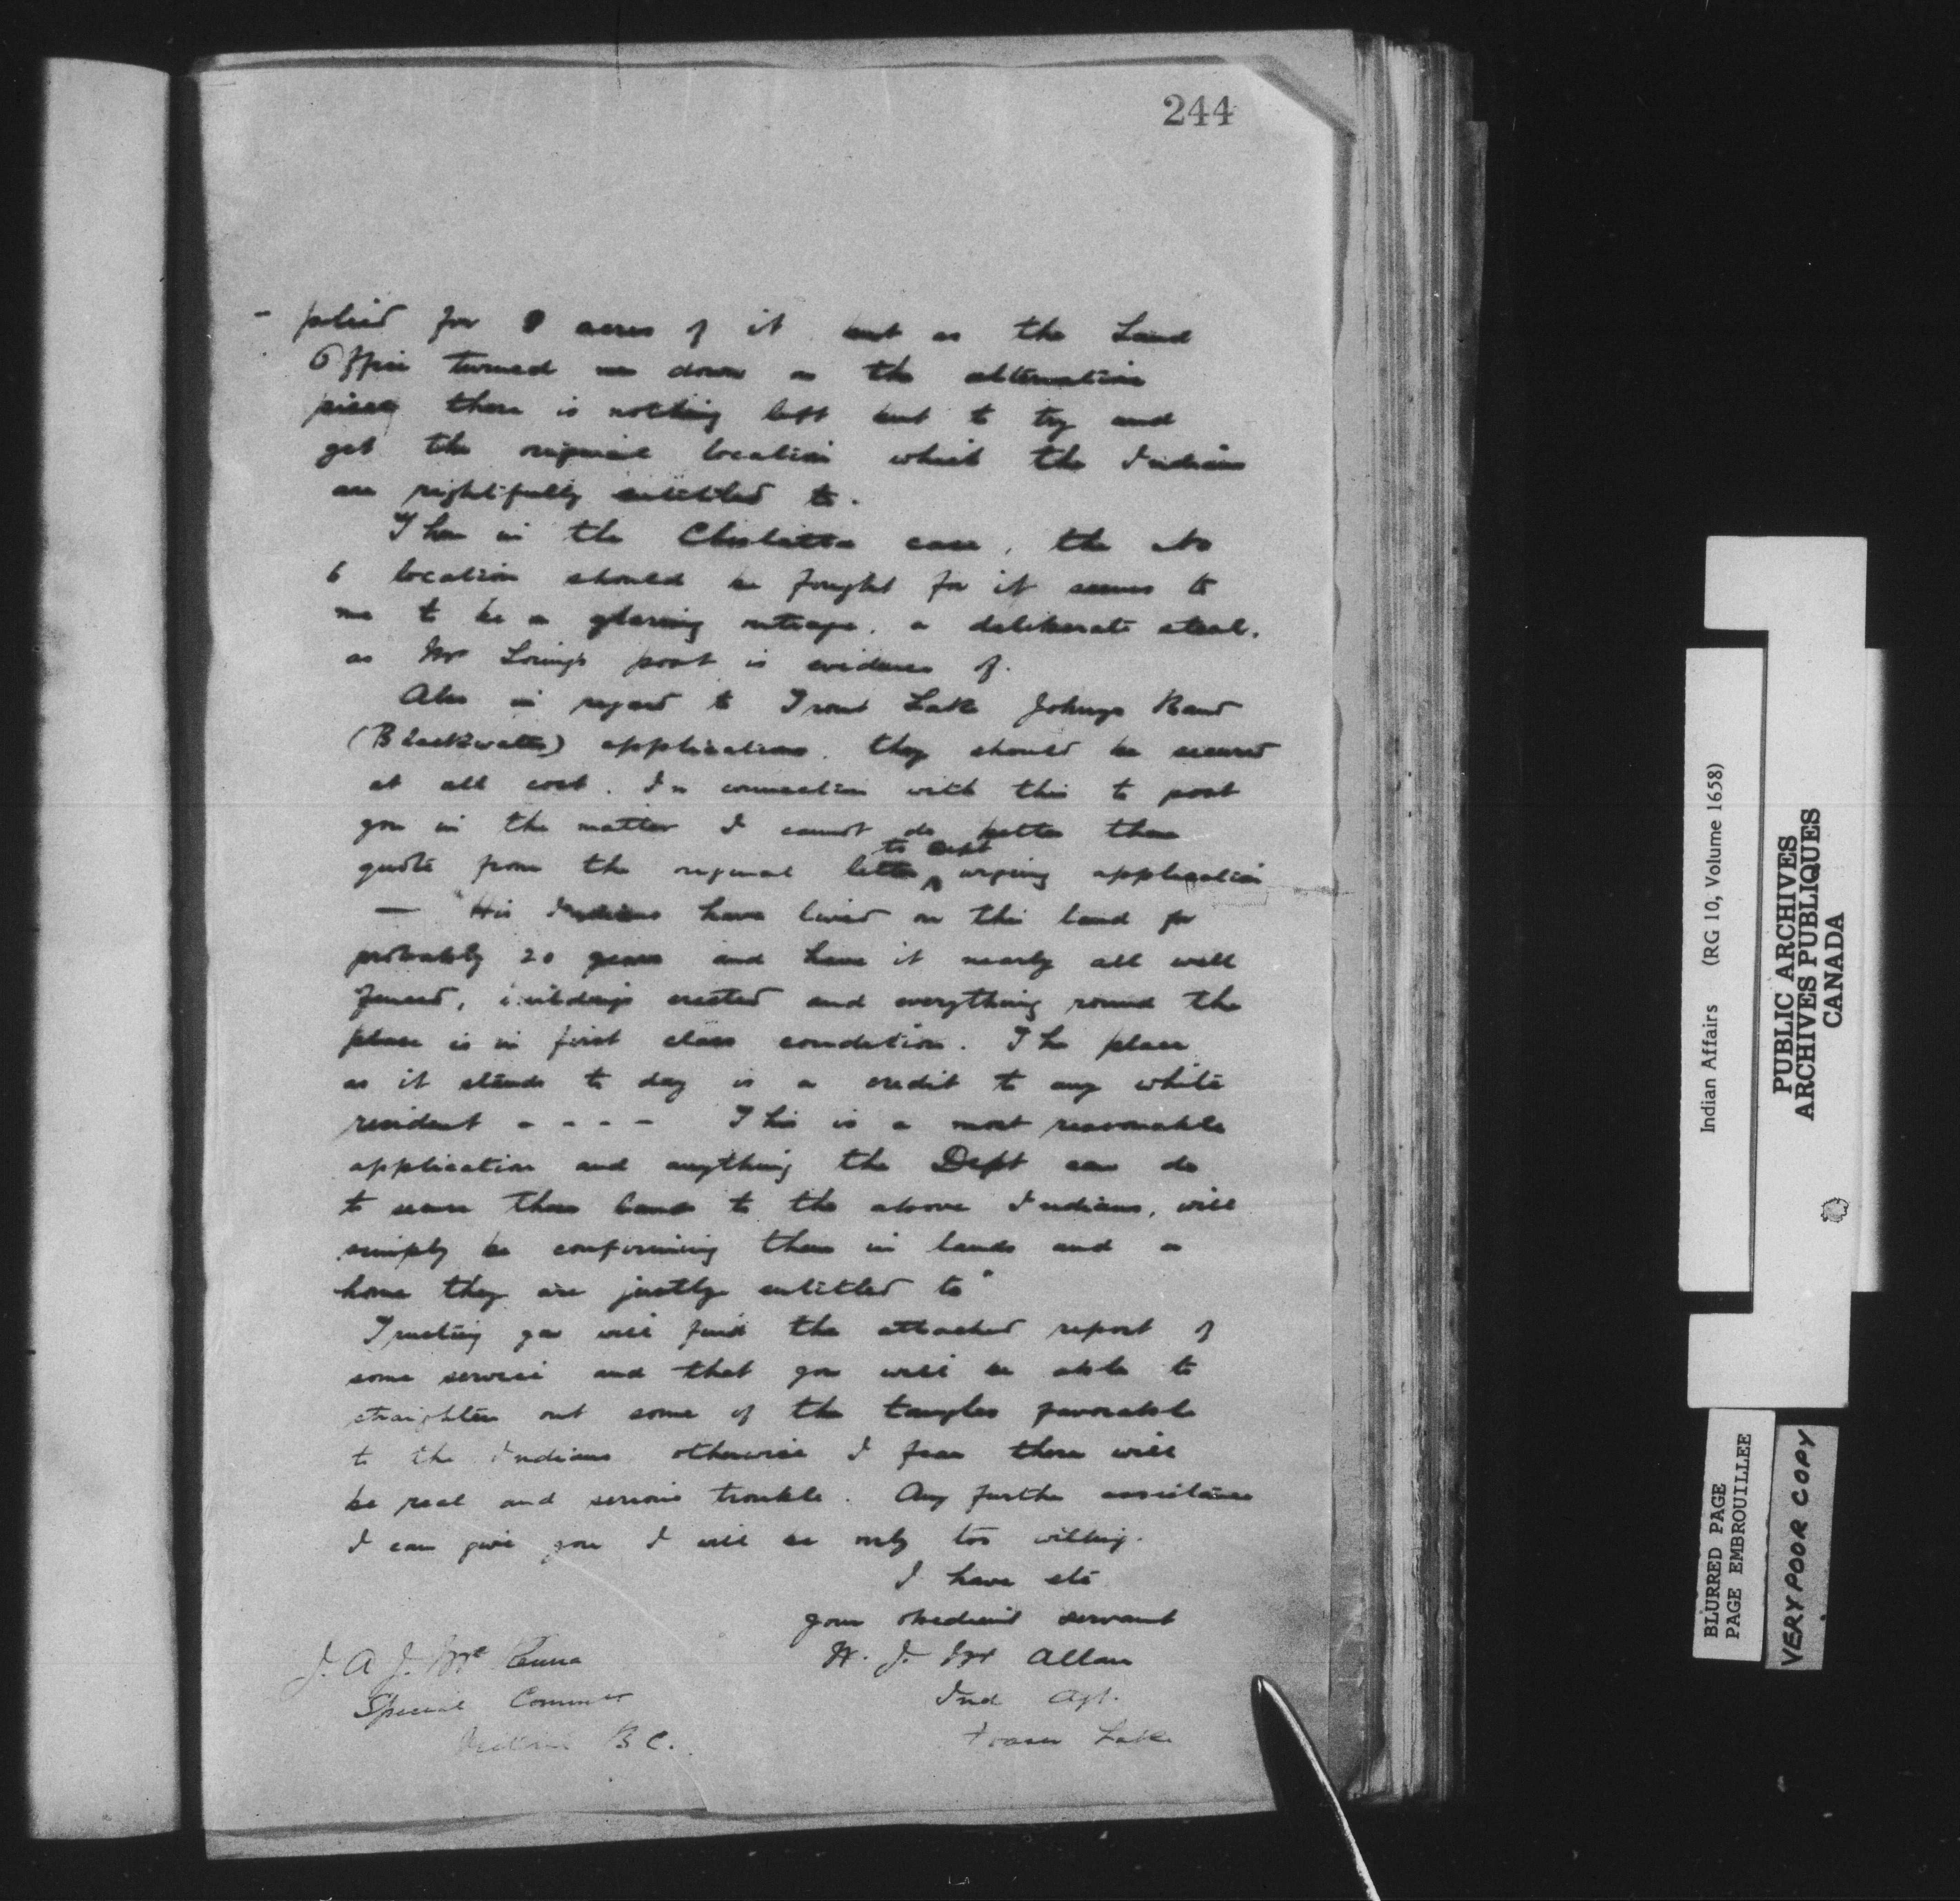 244
- plied for 8 acres of it but as the Land
Office turned me down on the alternative
piece, there is nothing left but to try and
get the original location which the Indians
are rightfully entitled to.
Then in the Cheslatta case, the No
6 location should be fought for it seems to
me to be a glaring outrage, a deliberate steal,
as Mr Loring's post is evidence of.
Also in regard to Trout Lake Johnys Band
(Blackwater) applications. they should be secured
at all cost. In connection with this to post
you in the matter I cannot do better than
to Dept
quote from the original letter urging application
— "His Indians have lived on this land for
probably 20 years and have it nearly all well
fenced, buildings erected and everything round the
place is in first class condition. The place
as it stands to day is a credit to any white
resident - - - - This is a most reasonable
application and anything the Dept can do
to secure these lands to the above Indians, will
simply be confirming them in lands and a
home they are justly entitled to"
Trusting you will find the attached report of
some service and that you will be able to
straighten out some of the tangles favorable
to the Indians otherwise I fear there will
be real and serious trouble. Any further assistance
I can give you I will be only too willing.
I have etc
your obedient servant
W. J. McAllan
Ind Agt.
Fraser Lake
J. A. J. McKenna
Special Commr
Victoria B C.
Indian Affairs (RG 10, Volume 1658)
PUBLIC ARCHIVES
ARCHIVES PUBLIQUES
CANADA
BLURRED PAGE
PAGE EMBROUILLEE
VERY POOR COPY